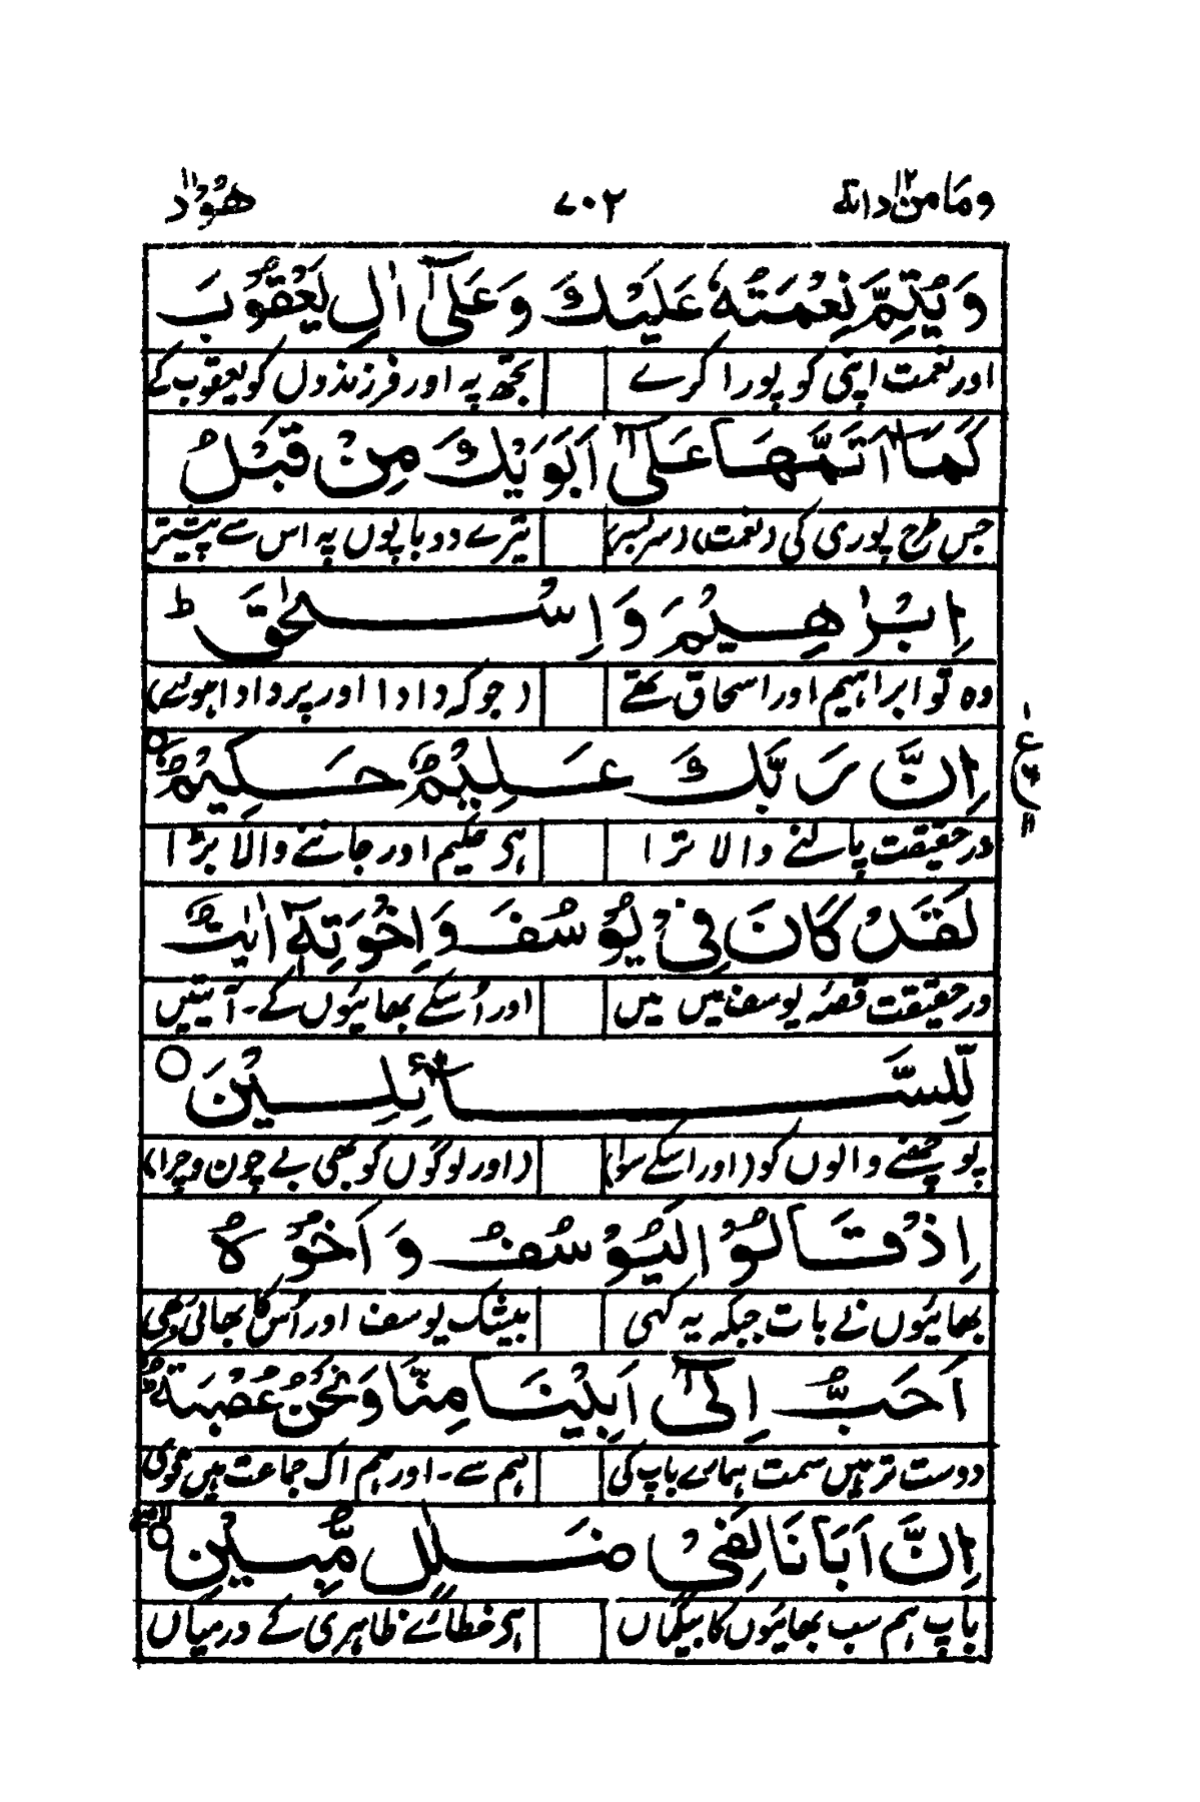 وما من دابة ١٢ ٧٠٢ هود ١١
وَيُتِمُّ نِعْمَتَهٗ عَلَيْكَ وَعَلٰٓى اٰلِ يَعْقُوْبَ
اور نعمت اپنی کو پورا کرے تجھ پہ اور فرزندوں کو یعقوب کے
كَمَآ اَتَمَّهَا عَلٰٓى اَبَوَيْكَ مِنْ قَبْلُ
جس طرح پوری کی (نعمت) سر بسر تیرے دو باپوں پہ اس سے پیشتر
اِبْرٰهِيْمَ وَاِسْحٰقَ ؕ
وہ تو ابراہیم اور اسحاق تھے (جو کہ دادا اور پردادا ہوئے)
اِنَّ رَبَّكَ عَلِيْمٌ حَكِيْمٌ ۝
ع
درحقیقت پالنے والا ترا ہے حکیم اور جاننے والا بڑا
لَقَدْ كَانَ فِيْ يُوْسُفَ وَاِخْوَتِهٖٓ اٰيٰتٌ
درحقیقت قصۂ یوسف میں ہیں اور اُسکے بھائیوں کے۔ آیتیں
لِّلسَّآئِلِيْنَ ۝
پوچھنے والوں کو (اور اسکے سوا) (اور لوگوں کو بھی بے چون وچرا)
اِذْ قَالُوْا لَيُوْسُفُ وَاَخُوْهُ
بھائیوں نے بات جبکہ یہ کہی بیشک یوسف اور اُس کا بھائی بھی
اَحَبُّ اِلٰٓى اَبِيْنَا مِنَّا وَنَحْنُ عُصْبَةٌ ؕ
دوست تر ہیں سمت ہمارے باپ کی ہم سے۔ اور ہم اک جماعت ہیں قوی
اِنَّ اَبَانَا لَفِيْ ضَلٰلٍ مُّبِيْنِ ۝
باپ ہم سب بھائیوں کا بیگماں ہے خطائے ظاہری کے درمیاں